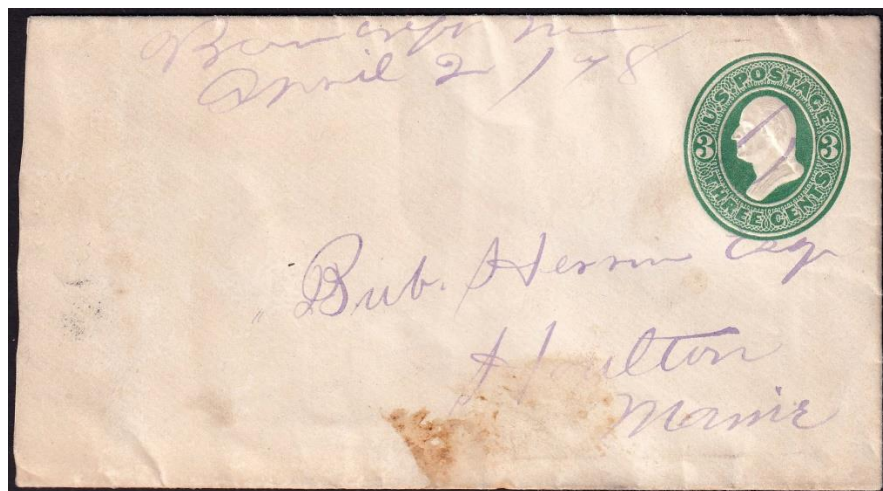 Bancroft Me
April 2 / 78
U.S. POSTAGE
3 3
THREE CENTS
Bub. Herrin Esq
Houlton
Maine